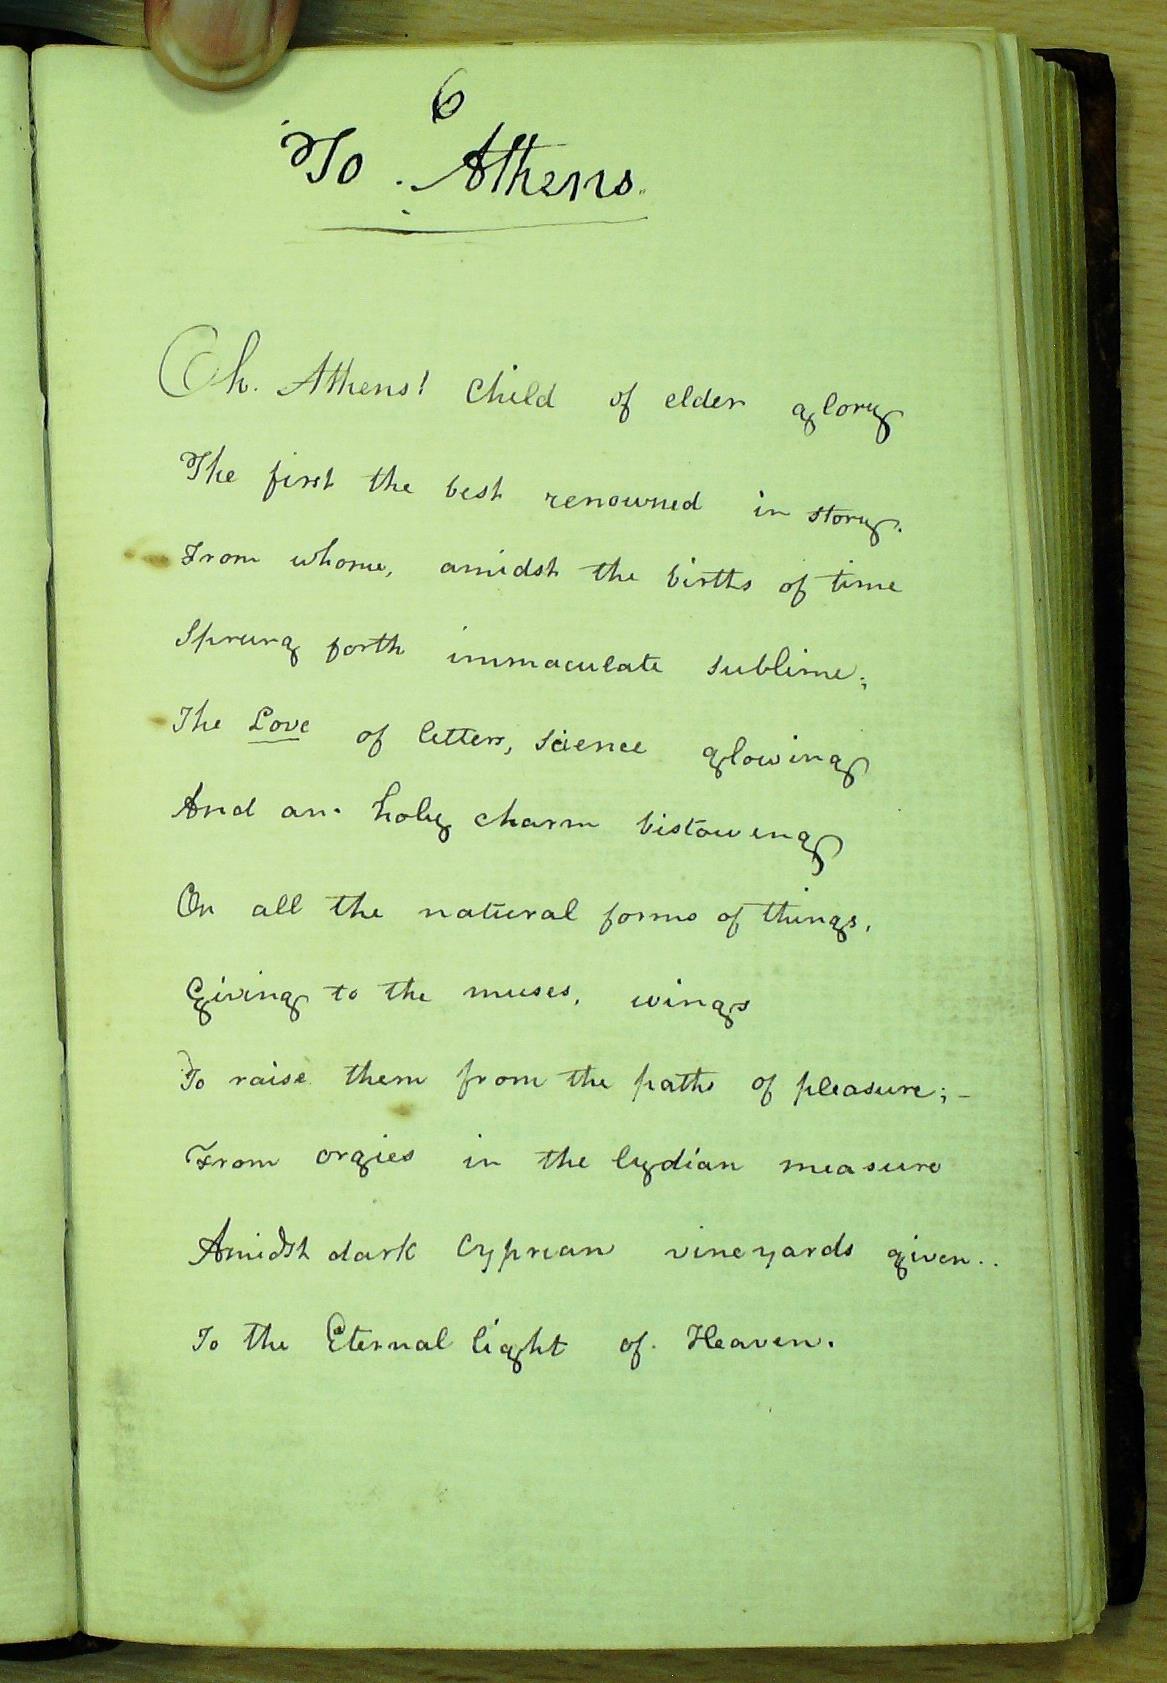 6
To Athens.
Oh. Athens! Child of elder glory
The first the best renowned in story.
From whome, amidst the births of time
Sprung forth immaculate sublime;
The Love of letters, science glowing
And an holy charm bistowing
On all the natural forms of things,
Giving to the muses, wings
To raise them from the paths of pleasure;-
From orgies in the lydian measure
Amidst dark Cyprian vineyards given..
To the Eternal light of Heaven.